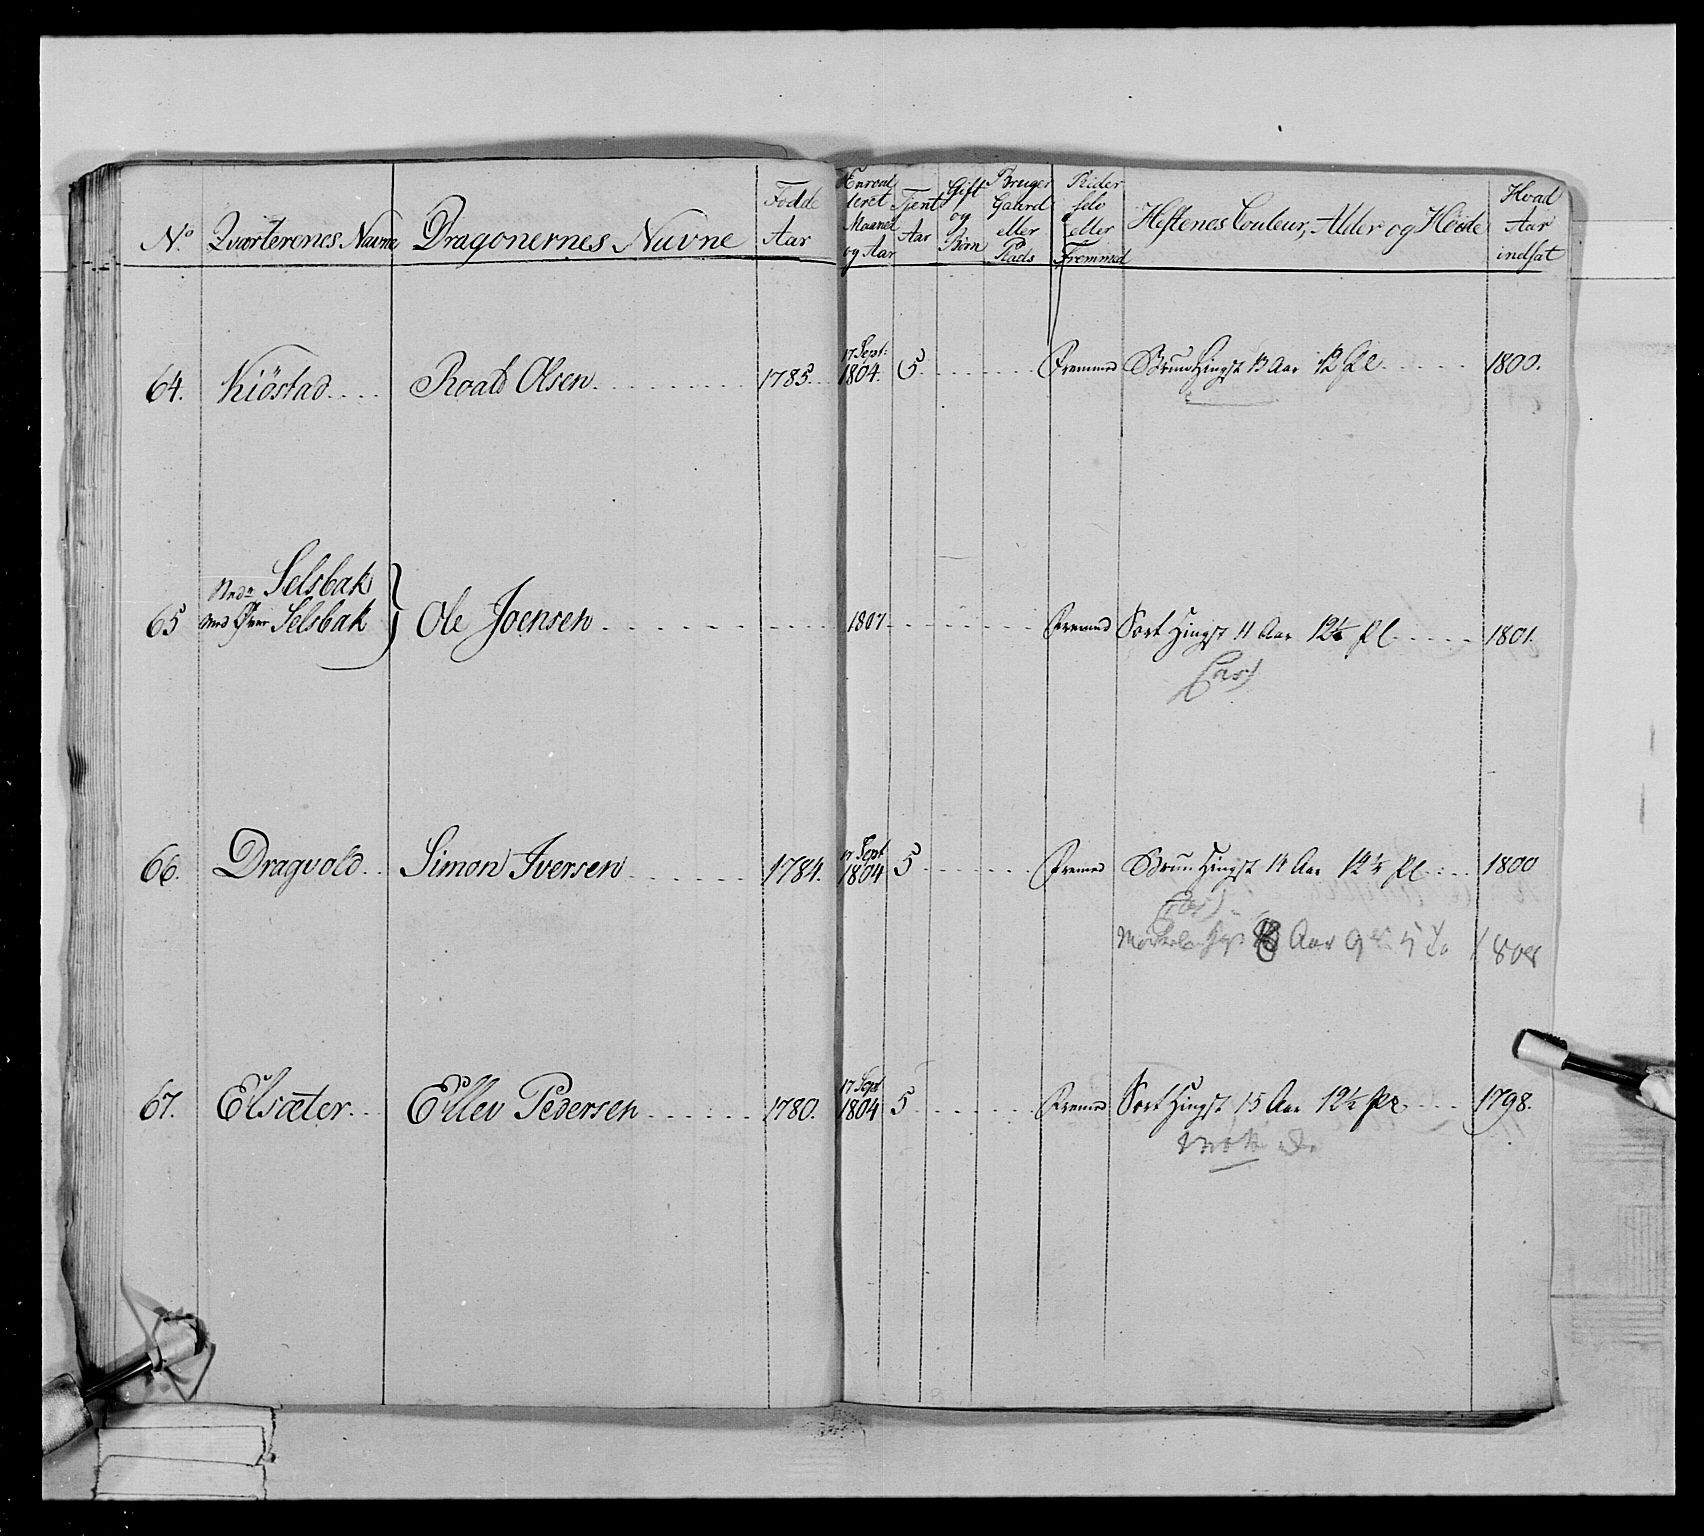 No. Qvarterenes Navne Dragonernes Navne Fødde Aar Enroul leret Maaned og Aar Tjent Aar Gift og Börn Bruger Gaard eller Plads Rider selv eller Fremmed Hestenes Couleur, Alder og Høide Hvad Aar indsat
64. Kiöstad Roald Olsen 1785. 17 Sept: 1804. 5 Fremmed Bruun Hingst 13 Aar 12 1800.
Nedr Selsbak
65 med Øver Selsbak } Ole Joensen 1807 Fremed Sort Hingst 11 Aar 12½ 1801.
66. Dragvold Simon Iversen 1784. 17 Sept 1804 5 Fremed Bruun Hingst 14 Aar 12½ 1800
Aar 9 1808
67. Elsæter Ellev Pedersen 1780. 17 Sept 1804 5 Fremed Sort Hingst 15 Aar 12½ 1798.